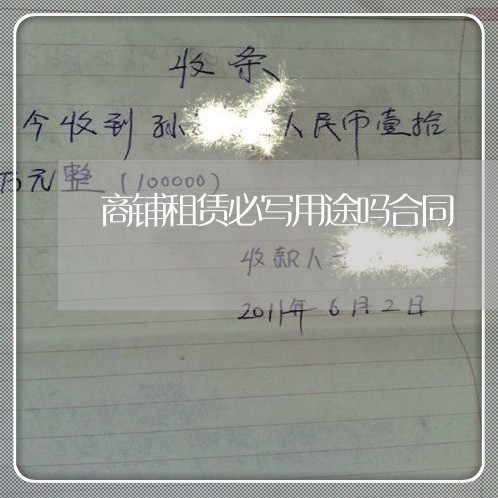 收条
今收到孙 人民币壹拾
万元整(100000)
商铺租赁必写用途吗合同
收款人
2011年6月2日